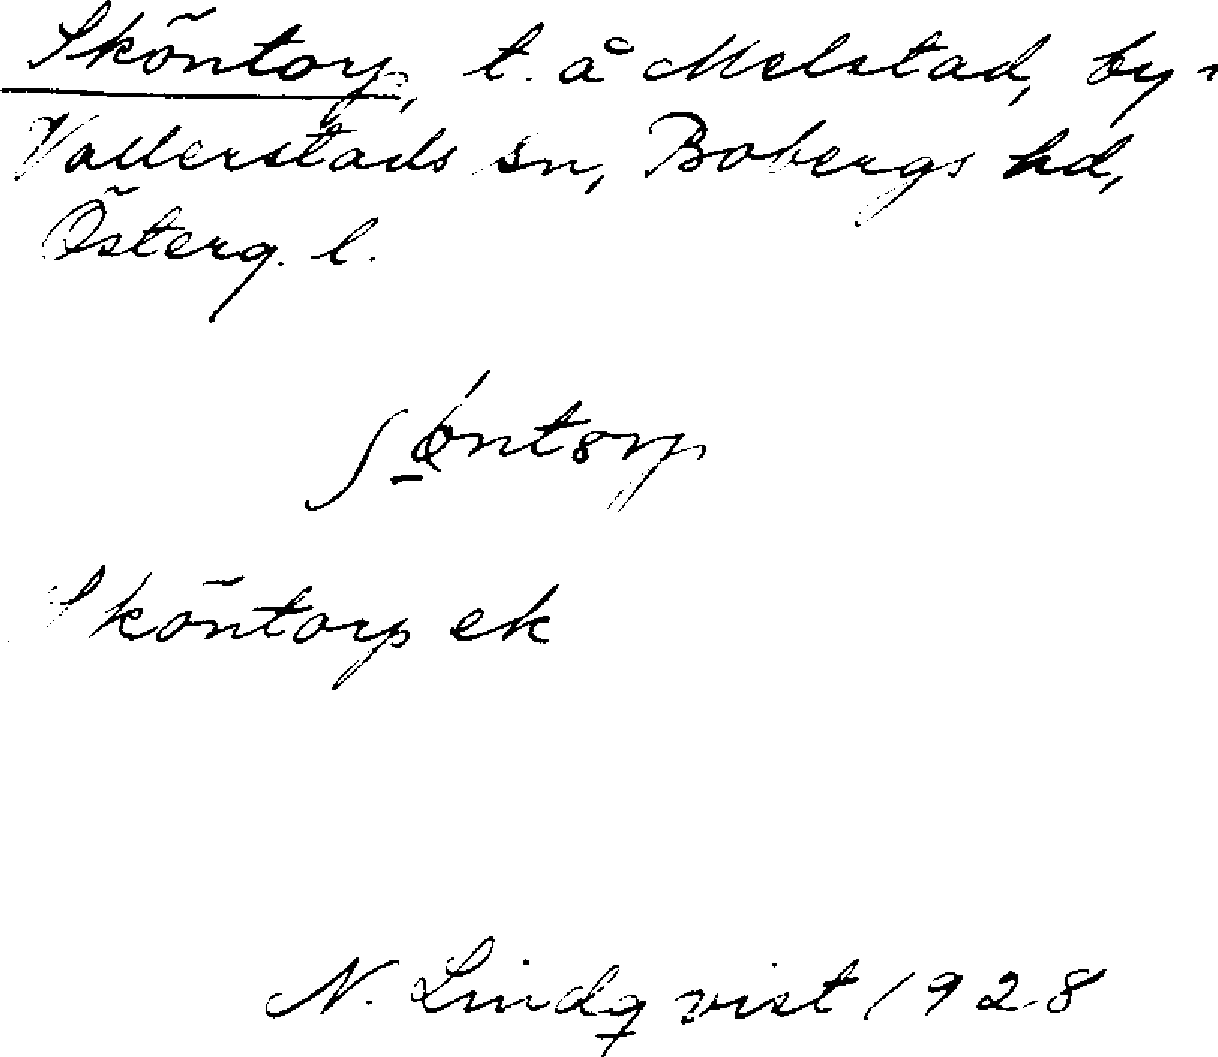 Sköntorp, t. å Melstad, by i
Vallerstads sn, Bobergs hd,
Österg. l.
Sköntorp ek
N. Lindqvist 1928